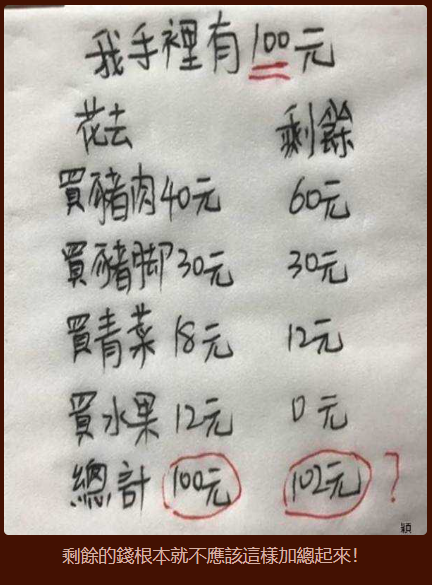 我手裡有100元
花去 剩餘
買豬肉40元 60元
買豬脚30元 30元
買青菜18元 12元
買水果12元 0元
總計 100元 102元?
穎
剩餘的錢根本就不應該這樣加總起來!